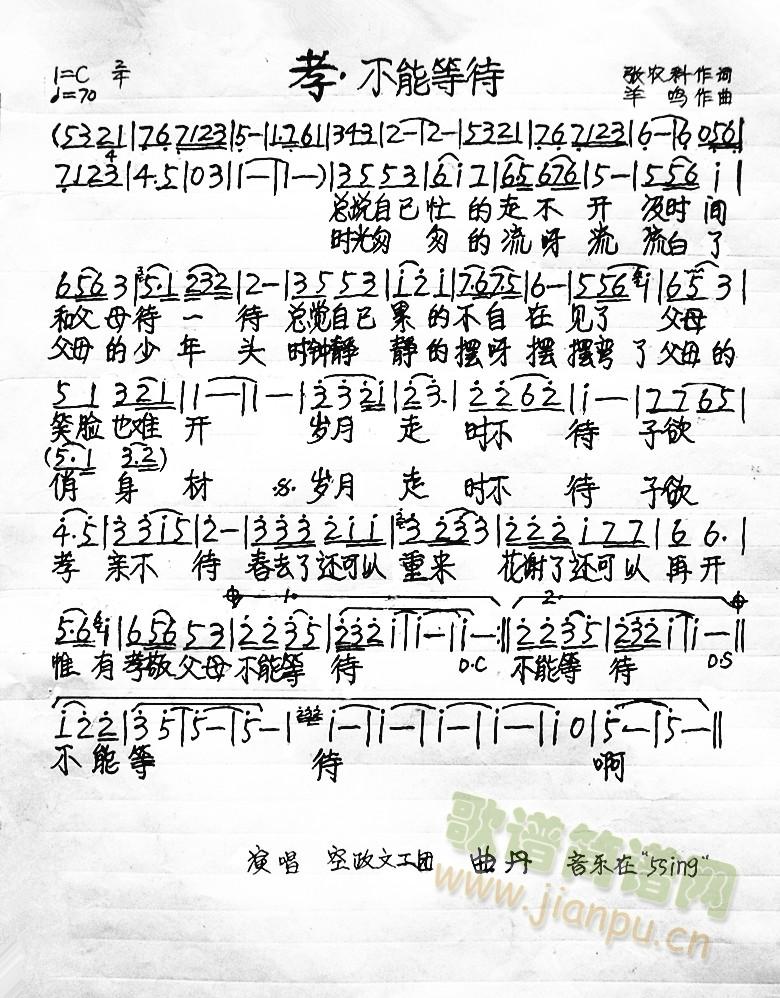 1=C 2/4
孝·不能等待
张农科作词
♩=70
羊鸣作曲
(5321|767123|5-|1761|343|2-|2-|5321|767123|6-|6056|
7123|4.5|03|1-|1-)|3553|6i7|65676|5-|556i|
总说自己忙的走不开 没时间
时光匆匆的流呀流 流白了
6563|5.1232|2-|3553|i2i|7.675|6-|556i|653|
和父母待一待 总觉自己累的不自在 见了父母
父母的少年头 时钟静静的摆呀摆 摆弯了父母的
51321|1-|1-|3321|23.|2262|i-|7765|
笑脸也难开 岁月走 时不待 子欲
(5.1 3.2)
俏身材 岁月走 时不待 子欲
4.5|33i5|2-|3332ii|3233|222i77|66.|
孝亲不待 春去了还可以重来 花谢了还可以再开
5.6i|65653|2235|232i|i-|i-:‖2235|232i|i-‖
1. 2.
惟有孝敬父母不能等待 D.C 不能等待 D.S
i22|35|5-|5-|i-|i-|i-|i-|i0|5-|5-‖
不能等 待 啊
演唱 空政文工团 曲丹 音乐在"55ing"
歌谱简谱网
www.jianpu.cn